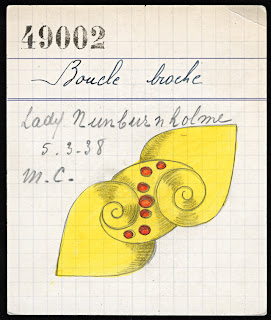 49002
Boucle broche
Lady Nunburnholme
5.3.38
M.C.